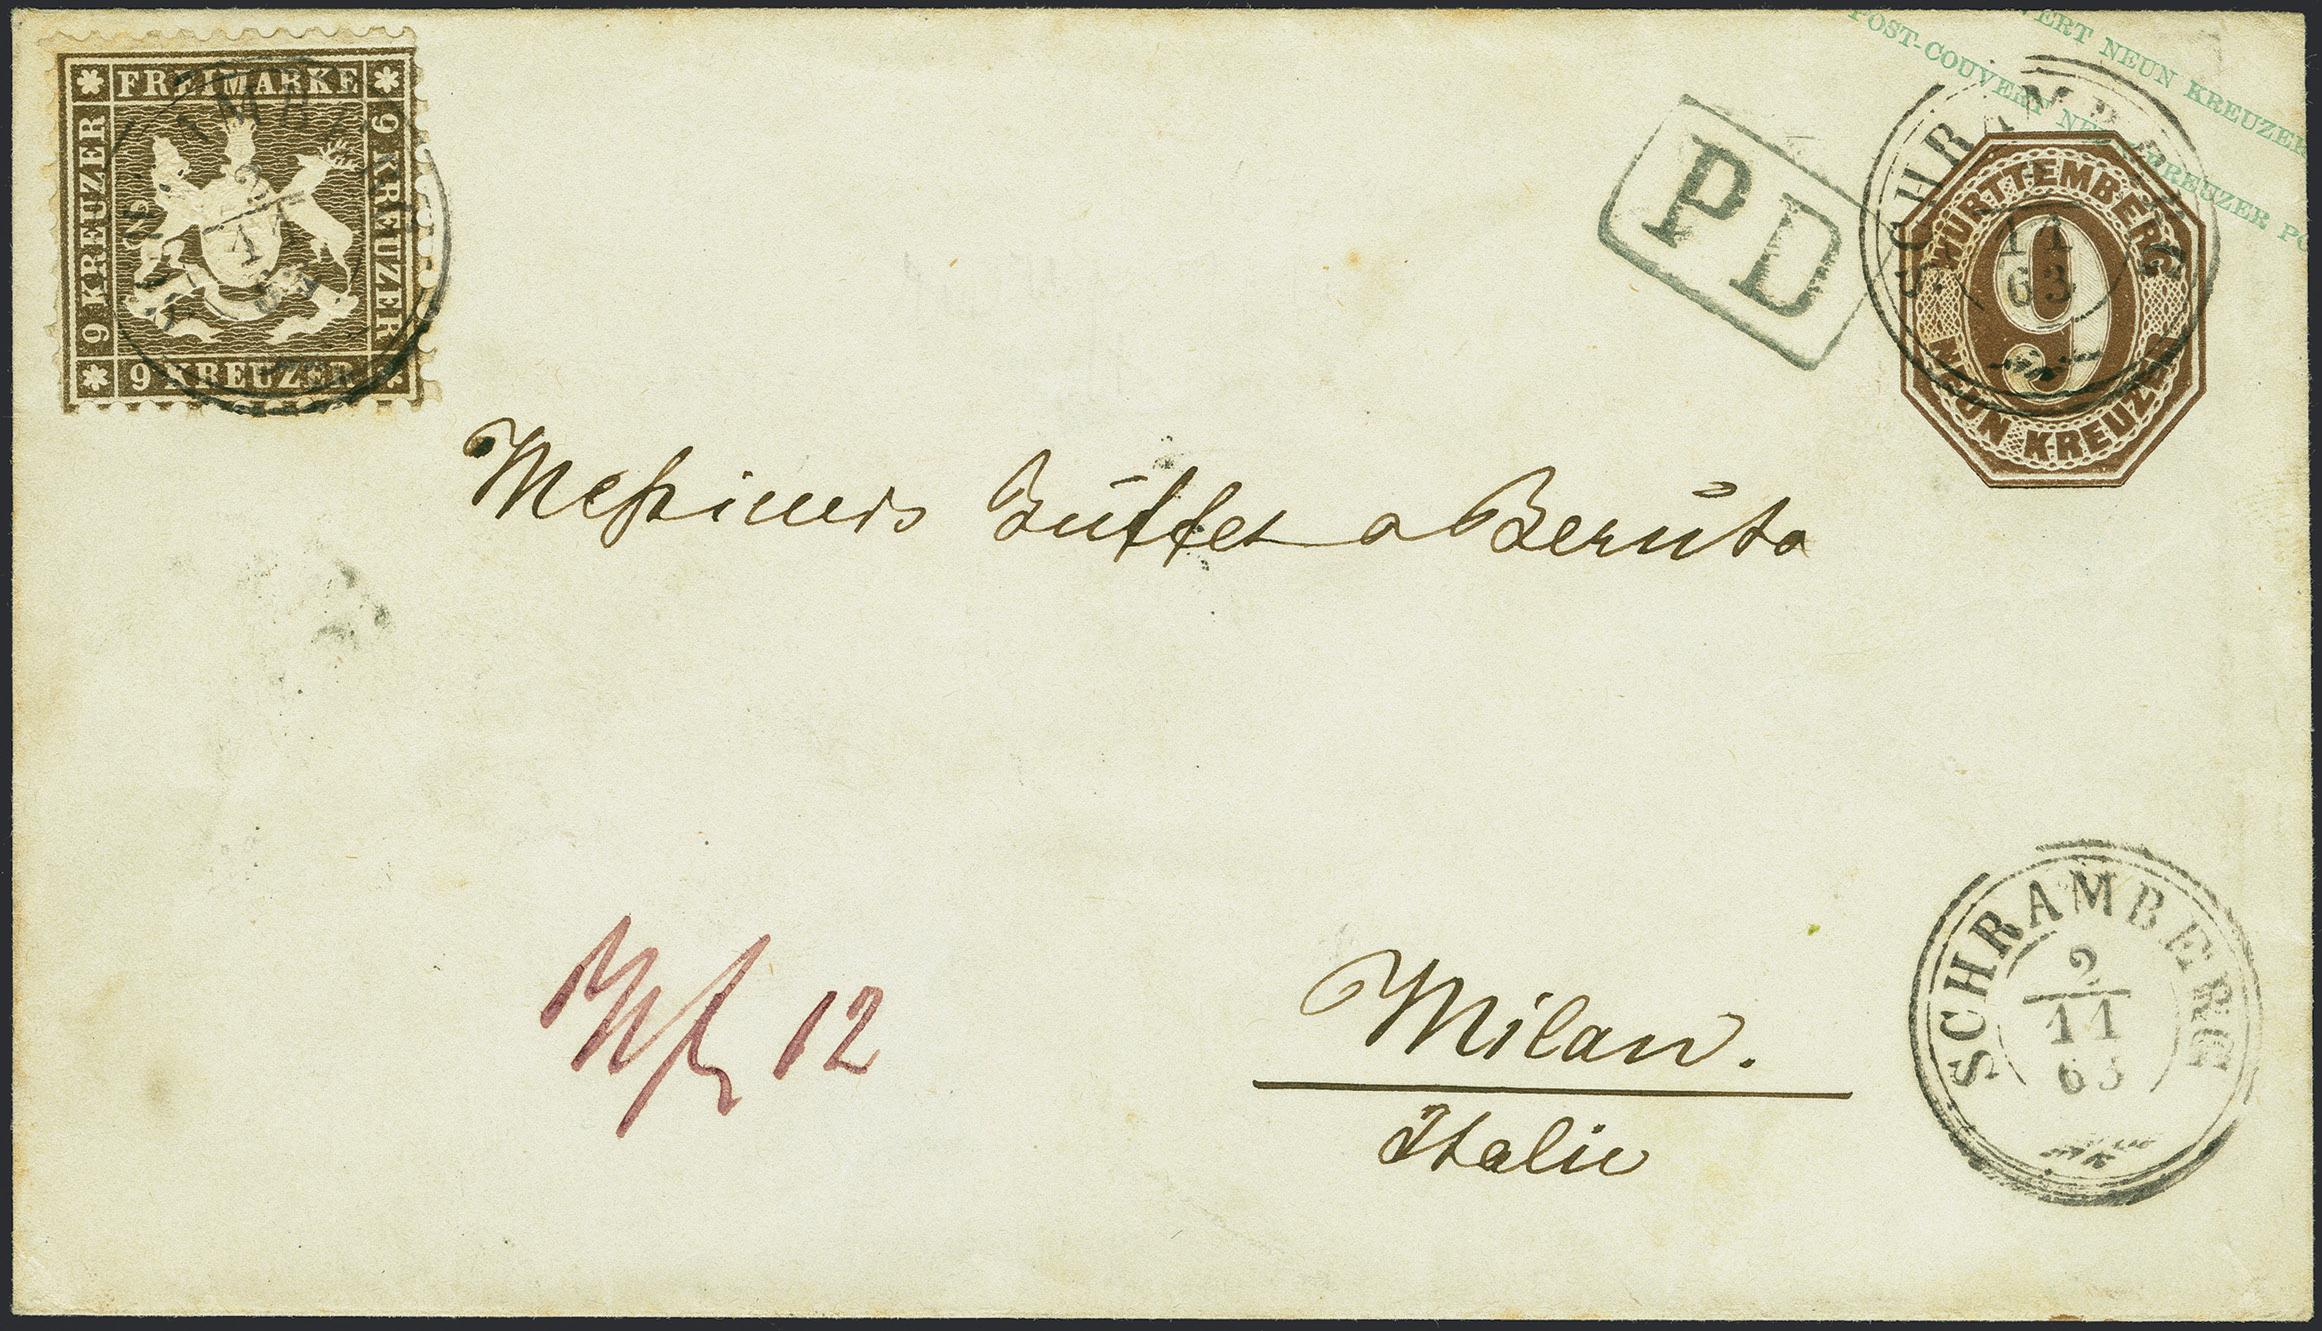 FREIMARKE
9 KREUZER
9 KREUZER
9 KREUZER
2
11
63
VERT NEUN KREUZER
POST-COUVERT NEUN KREUZER PO
PD
SCHRAMBERG
11
63
WÜRTTEMBERG
9
NEUN KREUZER
Meßieurs Büffet a Berüto
Milan.
Italie
12
SCHRAMBERG
2
11
63